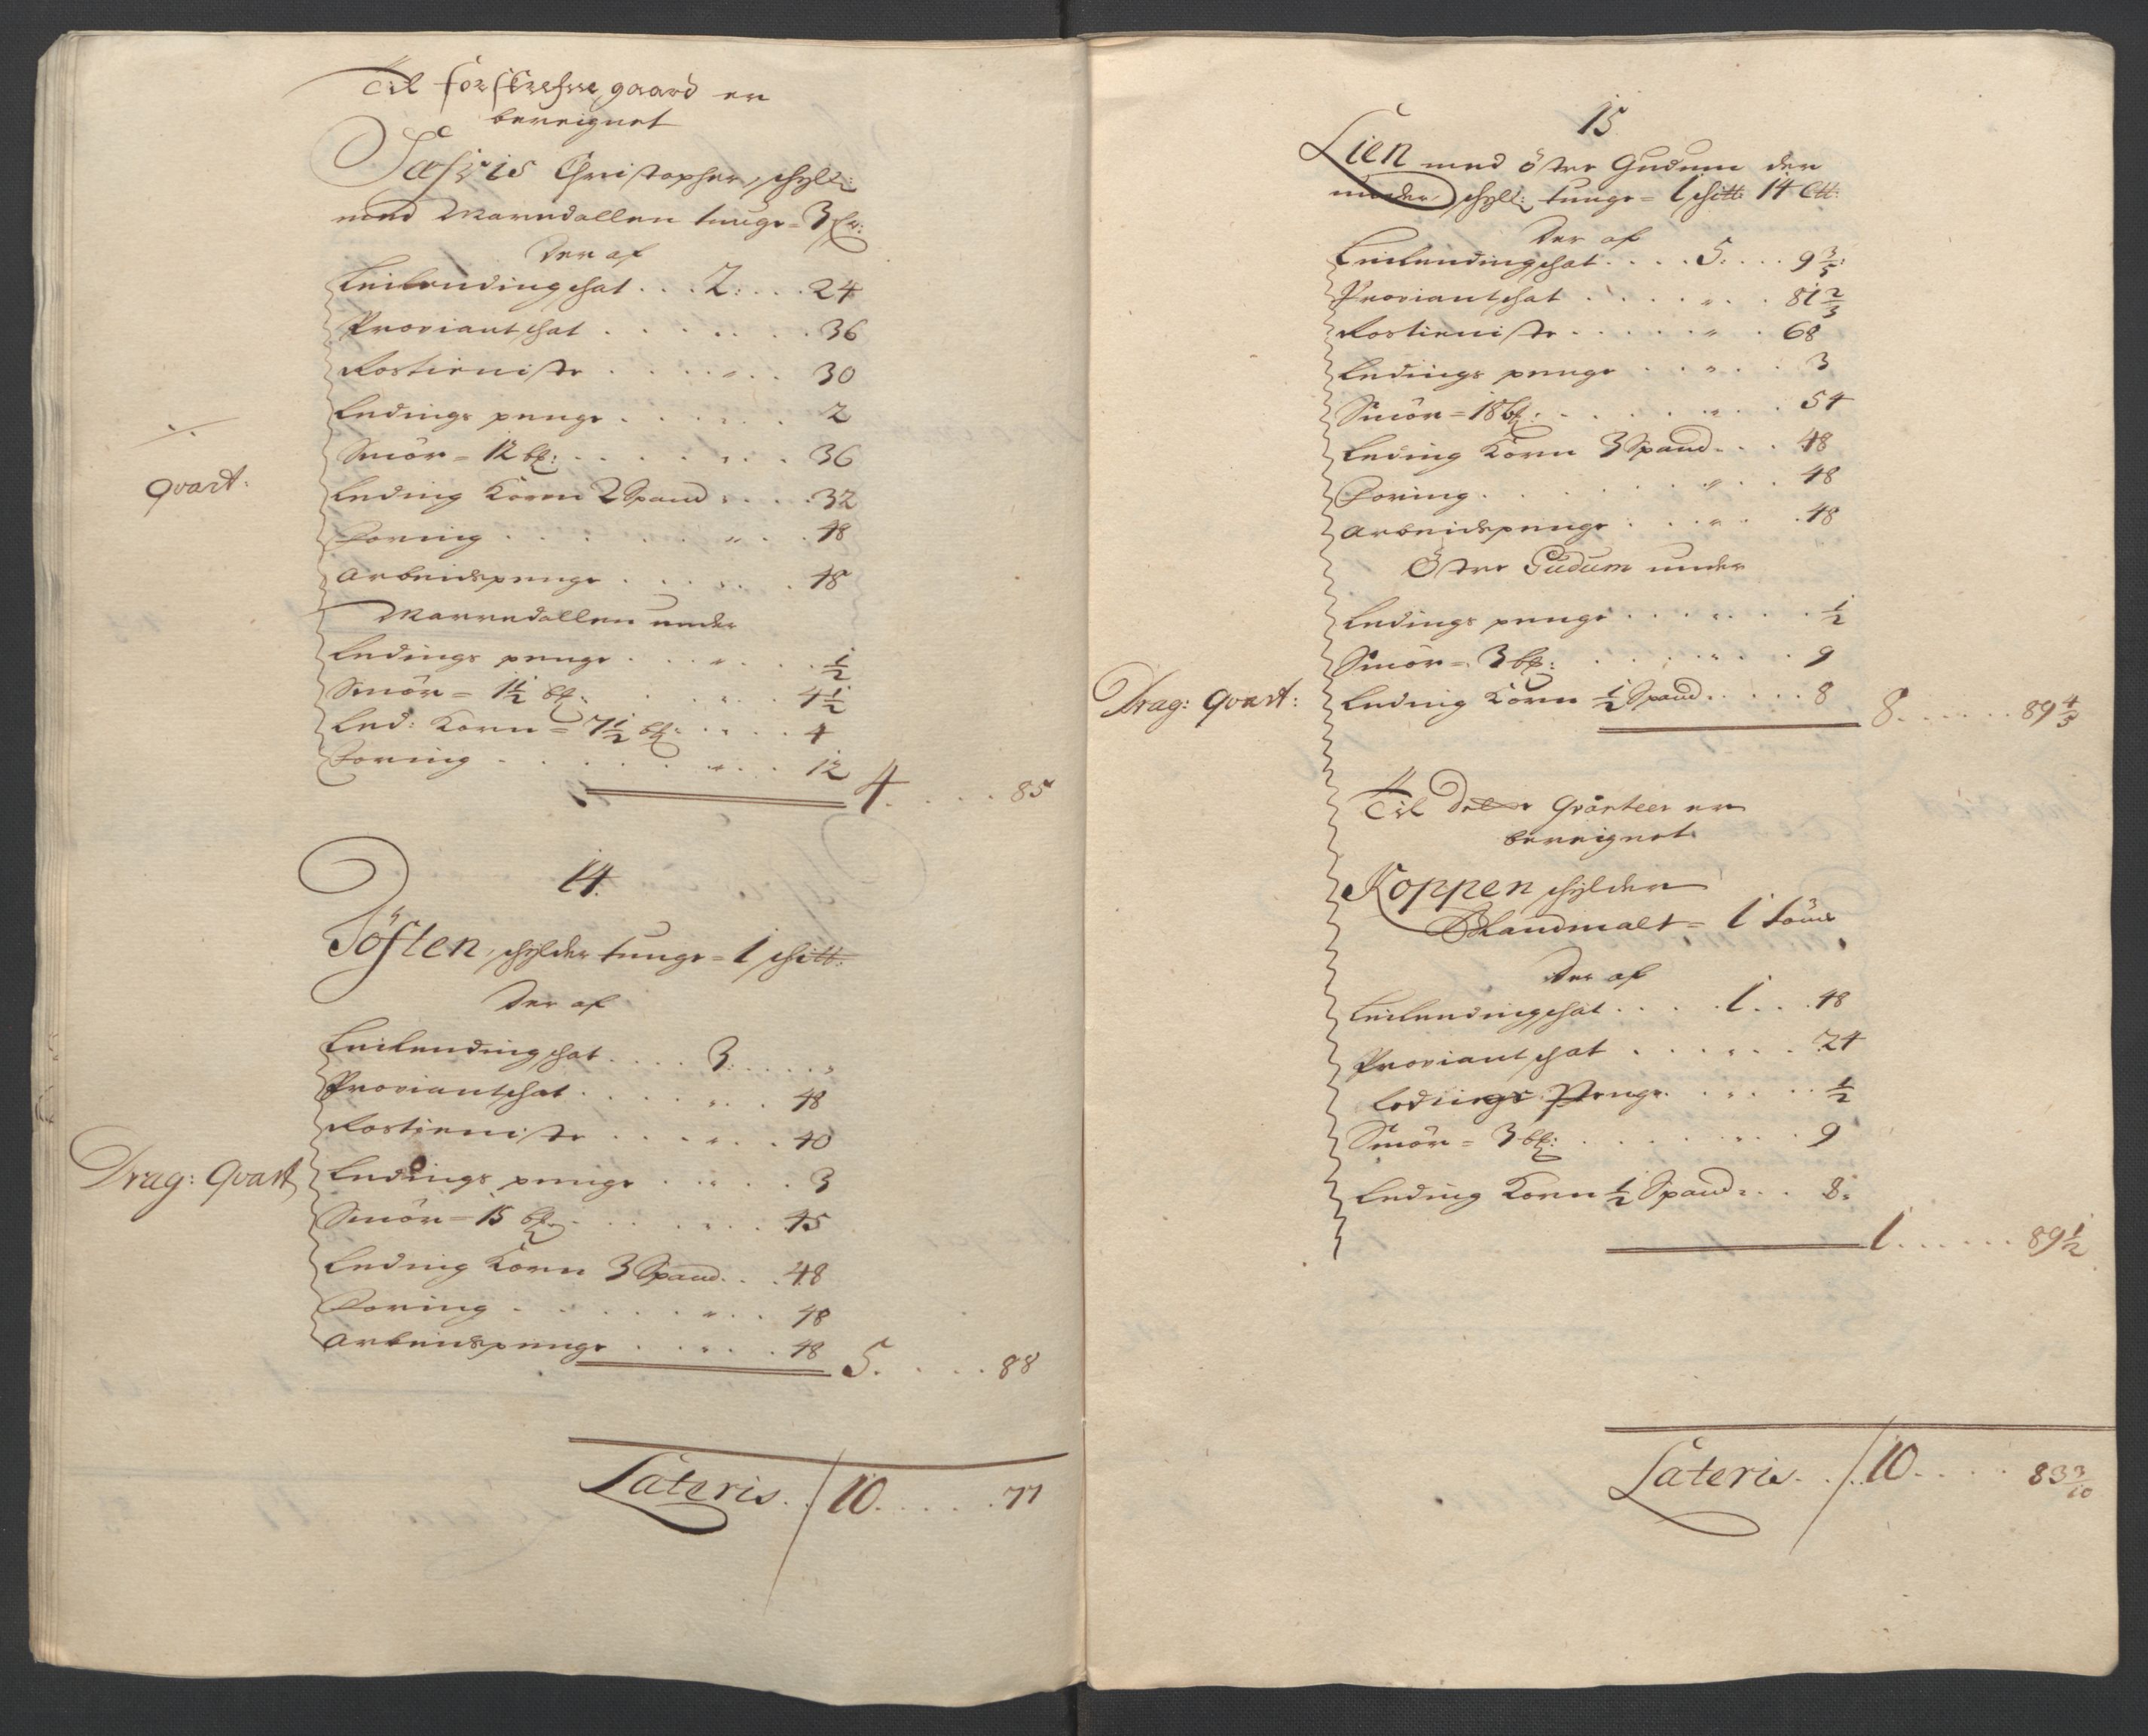 Til forskrefne gaard er
bereignet
Christopher, schyll:
med Marredallen tunge = 3
Der af
Leilending schat . . . 2 : . . . 24
Proviant schat . . . . . . . 36
Rostieniste . . . . " . . 30
Ledings penge . . . . . . 2
Smör = 12 b̶l̶: . . . . . . . 36
Leding Korn 2 Spand . . . . 32
Foring . . . . . . " . . 48
Arbeidspenge . . . . . . 48
Marredallen under
Ledings penge . . . " . . . ½
Smör = 1½ . . . " . . 4½
Led: Korn = 7½ . . . . 4
Foring . . . . . . " . . 12
4 . . . . . 85
qvart:
14.
Töften, schylder tunge = 1 schitt:
Der af
Leilending schat . . . . 3 : . . . . "
Proviantschat . . . . . " . . 48
Rostieniste . . . . . " . . 40
Ledings penge . . . " . . . 3
Smör = 15 . . . . . . . . . 45
Leding Korn 3 Spand . . . 48
Foring . . . . . . " . . 48
Arbeidspenge . . . " . . . 48
5 . . . . . 88
Drag: Qvart
Lateris . . / 10 . . . . . . 77
15
Lien med östre Gudum der
under, schyll: tunge = 1 schitt: 14
Der af
Leilendingschat . . . . 5 : . . . 9 3/5 :
Proviantschat . . . . . " . . 81 2/3
Rostieniste . . . . . " . . 68
Ledings penge . . . " . . . 3
Smör = 18 . . . . . . " . . . 54
Leding Korn 3 Spand . . . 48
Foring . . . . . . . " . . . 48
Arbeidspenge . . . " . . . 48
Östre Gudum under
Ledings penge . . . . " . . . . ½
Smör = 3 . . . . . " . . . 9
Leding Korn ½ Spand . . . . . 8
8 . . . . . . 89 4/5
Drag: qvart:
Til dette Qvarteer er
bereignet
Koppen schylder
Blandmalt = 1 tönde
Der af
Leilendingschat . . . . . 1 . . . 48
Proviant schat . . . . " . . . 24
Ledings Penge . . . " . . . . ½
Smör = 3 . . . . . . " . . . 9
Leding Korn ½ Spand . . . 8 :
1 . . . . . . 89½
Lateris . . / . . 10 . . . . . 83 3/10